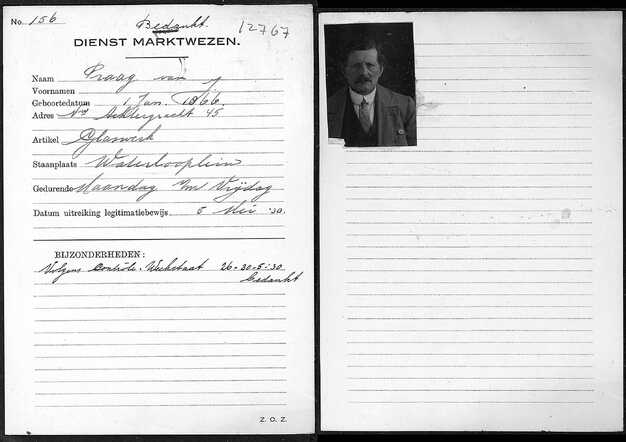 No. 156
Bedankt.
12767
DIENST MARKTWEZEN.
Naam Praag van J
Voornamen
Geboortedatum 1 Jan. 1866.
Adres Nwe Achtergracht 45
Artikel Glaswerk
Staanplaats Waterlooplein
Gedurende Maandag t/m Vrijdag
Datum uitreiking legitimatiebewijs. 5 Mei '30.
BIJZONDERHEDEN:
Volgens Contrôle. Weekstaat 26-30-5-'30
bedankt
Z. O. Z.